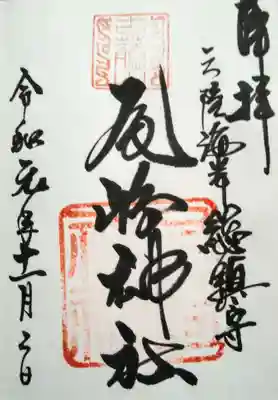 奉拝
三陸海岸総鎮守
尾崎神社
令和元年十一月二日